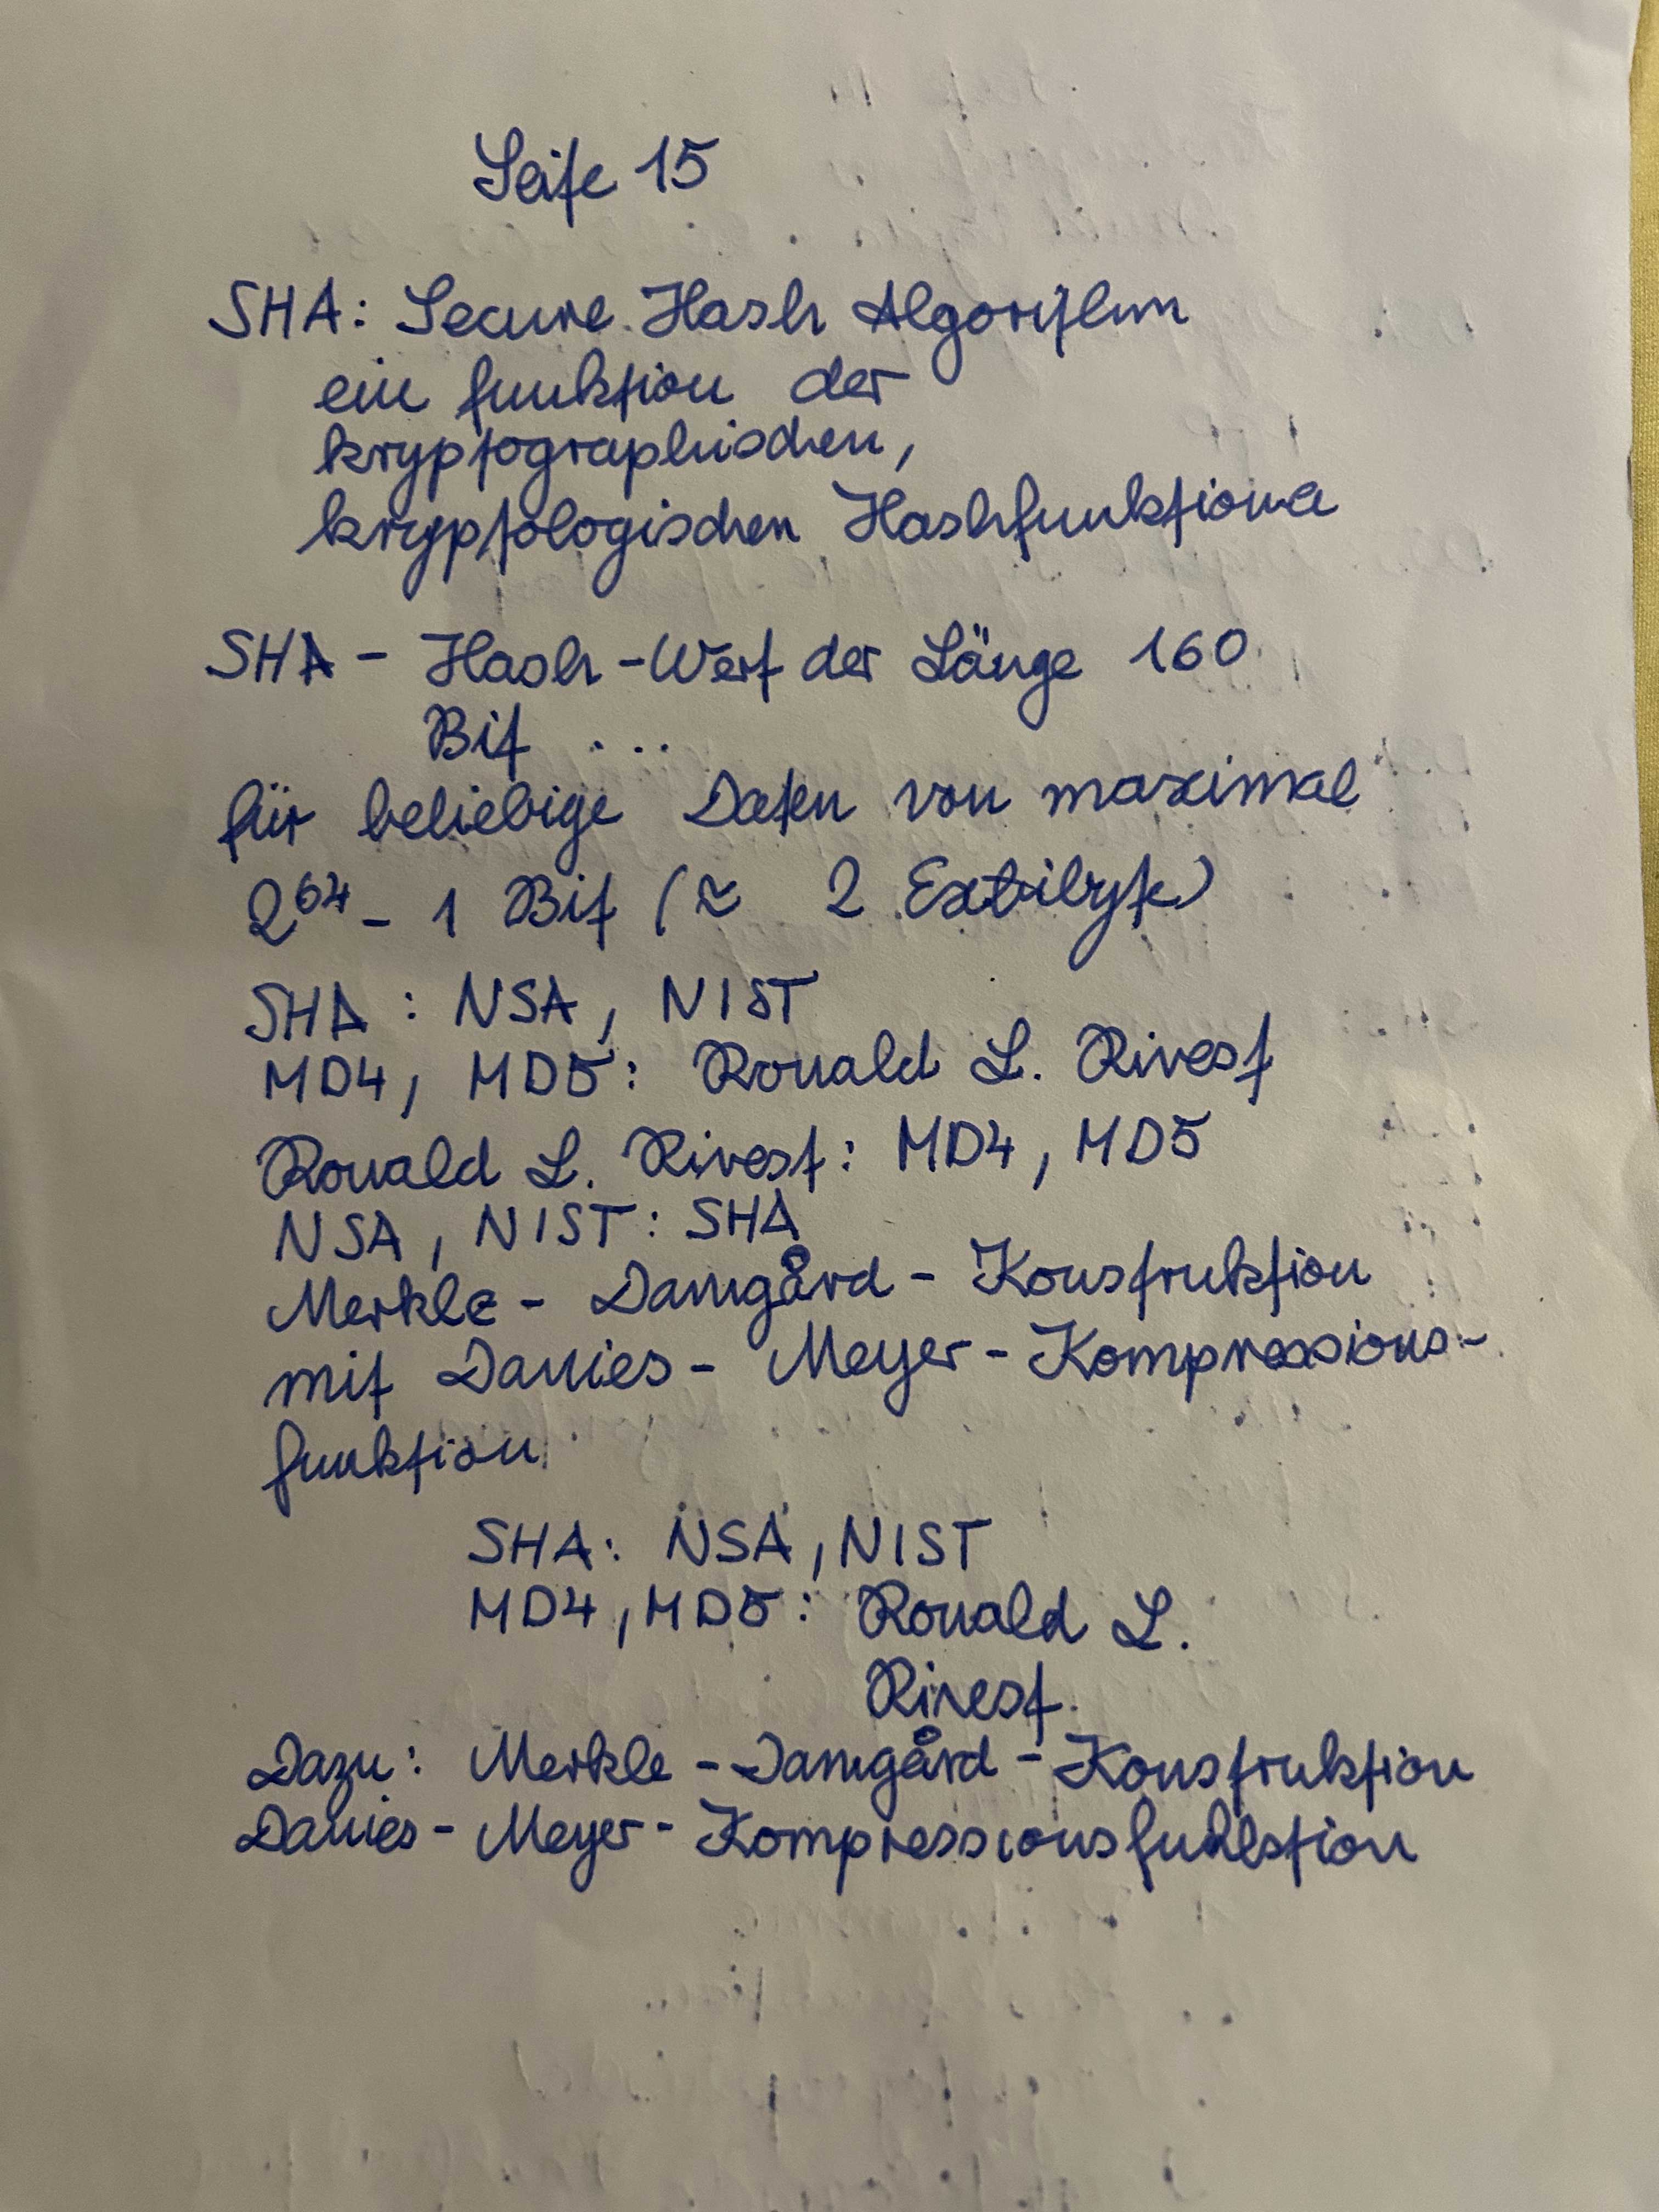 Seite 15
SHA: Secure Hash Algorithm
ein funktion der
kryptographischen,
kryptologischen Hashfunktione
SHA - Hash-Wert der Länge 160
Bit ...
für beliebige Daten von maximal
2⁶⁴ - 1 Bit (≈ 2 Exbibyte)
SHA : NSA, NIST
MD4, MD5: Ronald L. Rivest
Ronald L. Rivest: MD4, MD5
NSA, NIST: SHA
Merkle - Damgård - Konstruktion
mit Davies - Meyer - Kompressions-
funktion
SHA: NSA, NIST
MD4, MD5: Ronald L.
Rivest
Dazu: Merkle - Damgård - Konstruktion
Davies - Meyer - Kompressionsfunktion